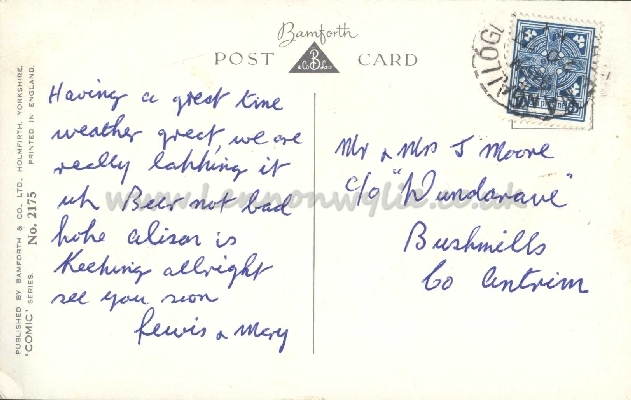 Bamforth
POST CARD
B
& Co Ltd
PUBLISHED BY BAMFORTH & CO. LTD., HOLMFIRTH, YORKSHIRE.
"COMIC" SERIES. No. 2175 PRINTED IN ENGLAND.
Having a great time
weather great, we are
really lapping it
up Beer not bad
hope alison is
Keeping allright
see you soon
Lewis & Mary
Mr & Mrs J Moore
c/o "Dundarave"
Bushmills
Co Antrim
www.lennonwylie.co.uk